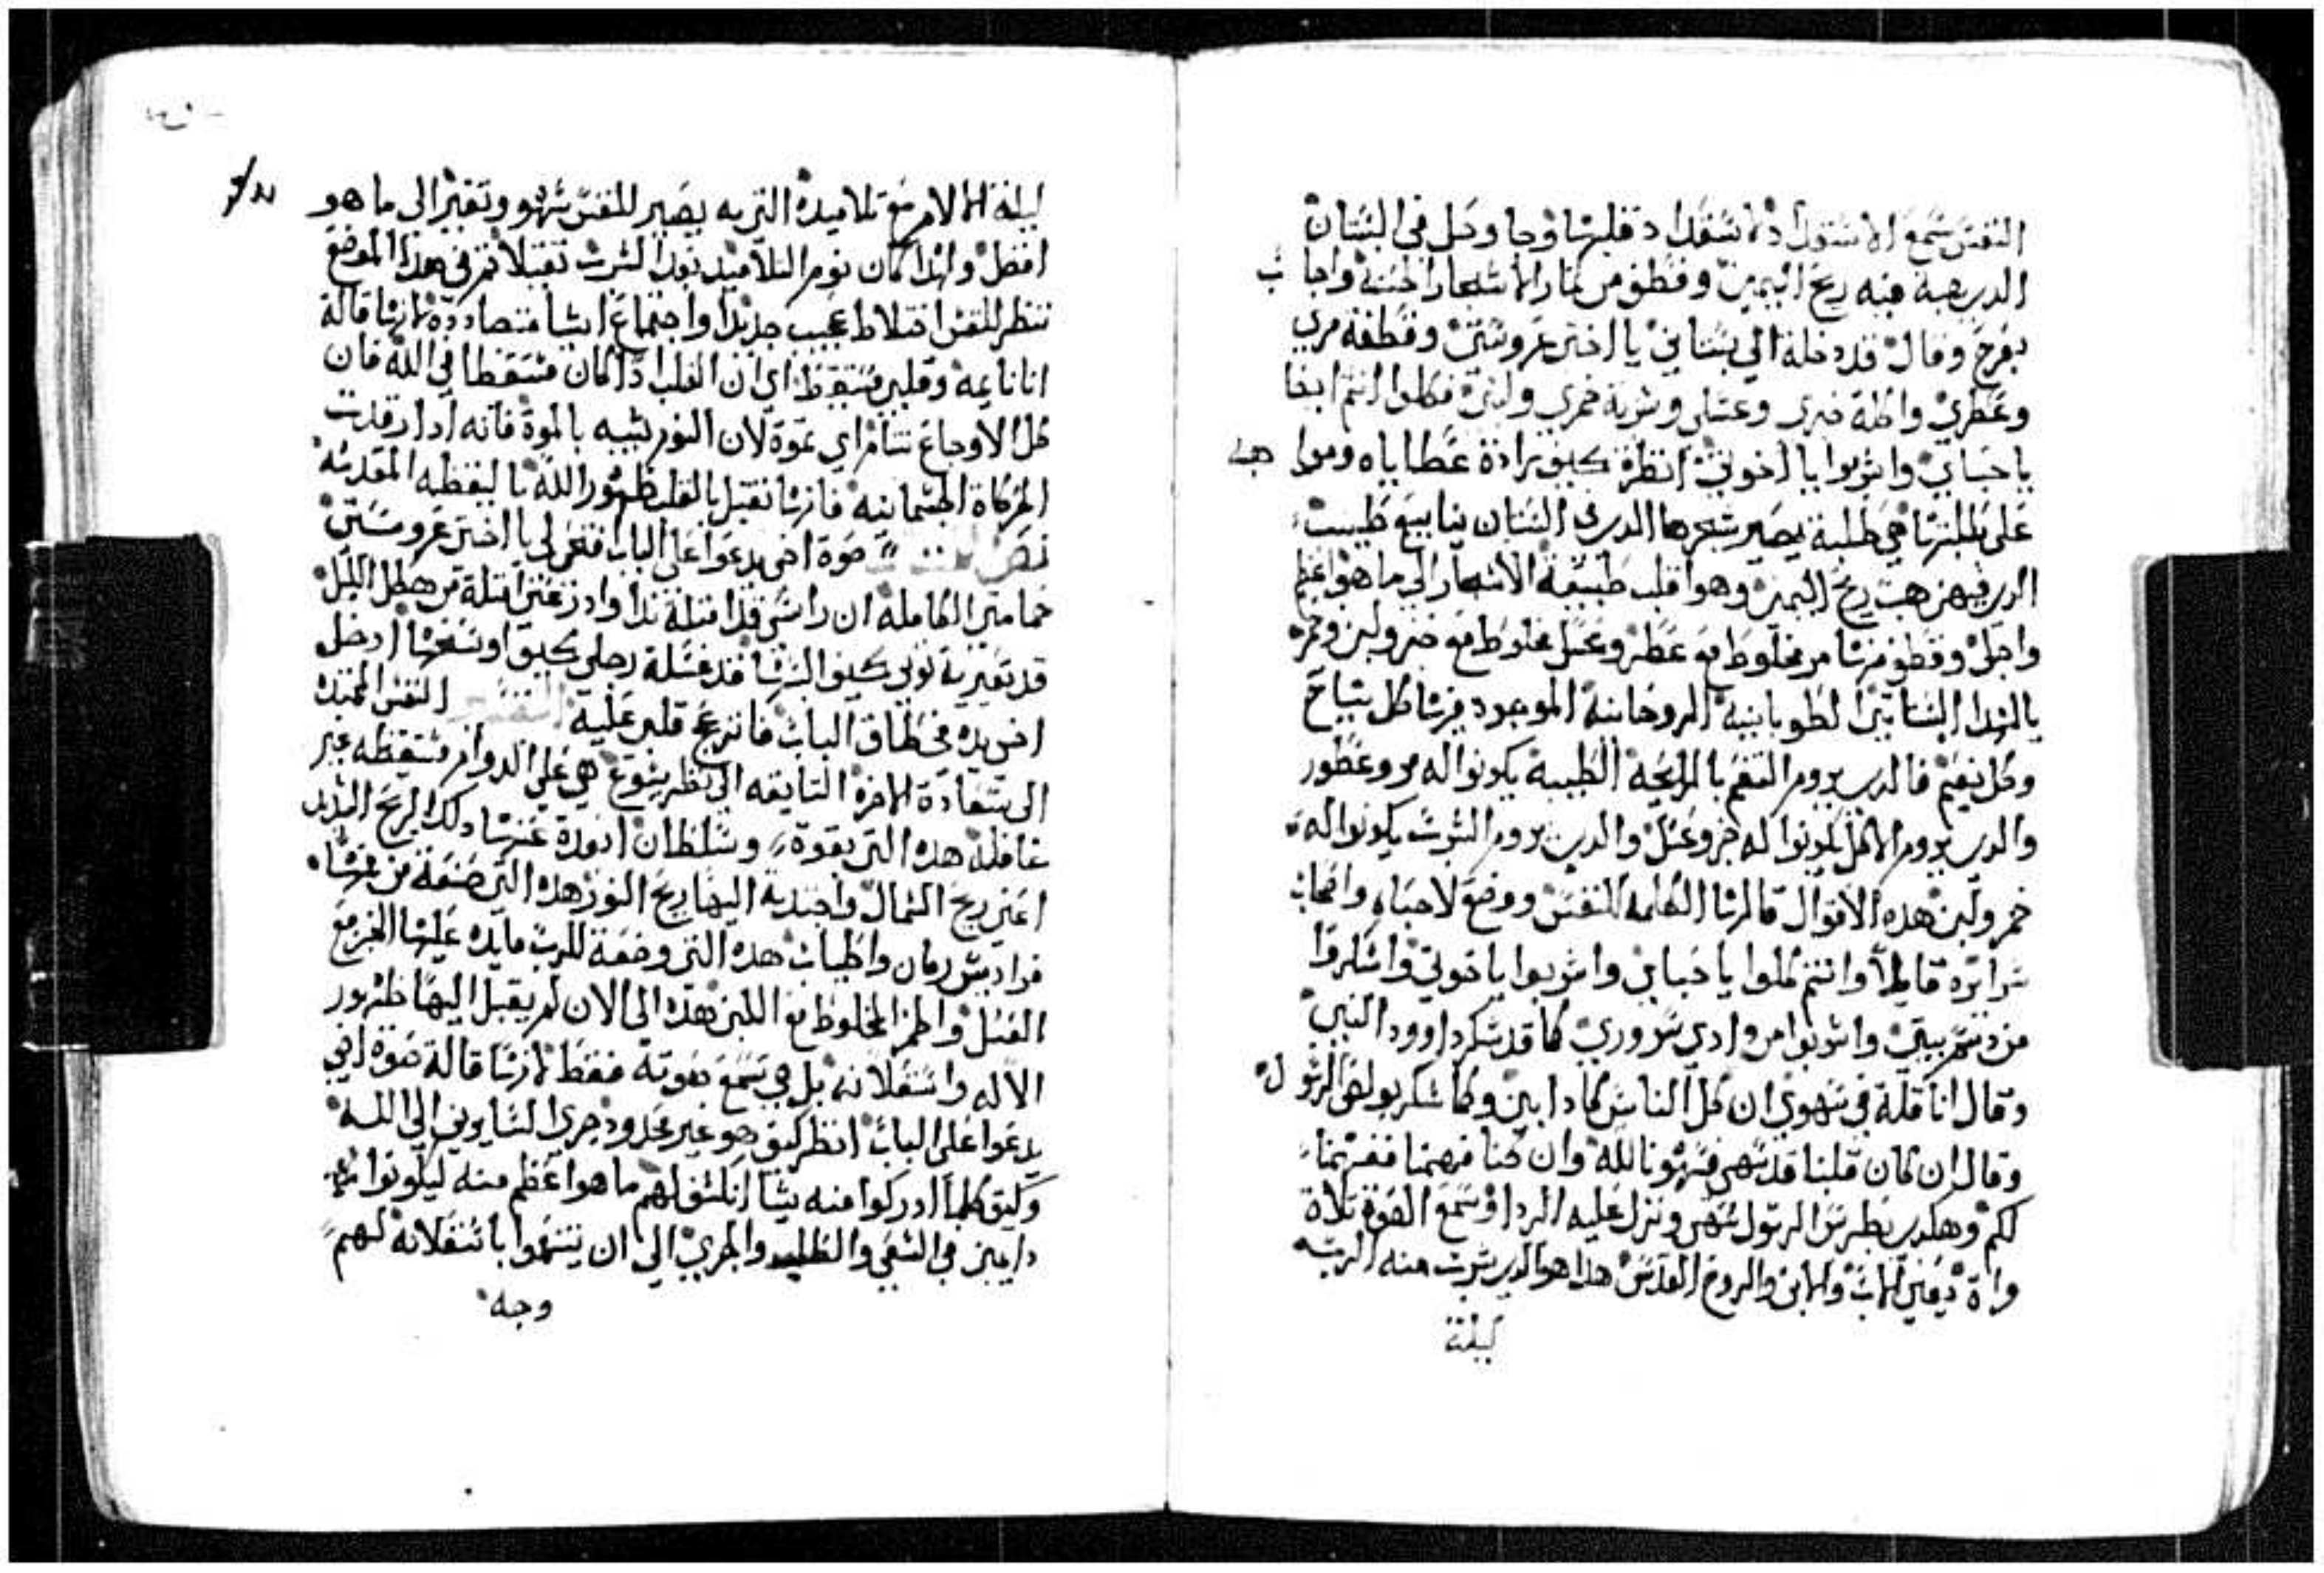 النفس سمع الاستعداد لاستعداد قلبها وجا وحل في البستان
الدي هبة فيه ريح اليمين وقطف من تمار الاشجار الحسنة واجاب
بفرح وقال قد دخلة الي بستاني يا اختي عروستي وقطفة مري
وعطري واكلة خبزي وعسلي وشربة خمري ولبني فكلوا انتم ايضا
يا احباي واشربوا يا اخوتي انظرة كيف زادة عطاياه ومواهبه
على طلبتها هي طلبة يصير شجرها الدي في البستان ينابيع طيب
الدي فيهن هبت ريح اليمين وهو اقلب طبيعة الاشجار الي ما هو اعظم
واجل وقطف منها مر مخلوط مع عطر وعسل مخلوط مع خبز ولبن وخمر
بالروحانية الموجود فيها كل شياح
وكل نعيم فالدي يروم التنعم بالرايحة الطيبة يكونوا له مر وعطور
والدي يروم الاكل يكونوا له خبز وعسل والدي يروم الشرب يكونوا له
خمر ولبن هده الاقوال قالها الكلمة للنفس ووضع لاحباه واصحاب
سرايره قايلا وانتم كلوا يا احباي واشربوا يا اخوتي واسكروا
من دسم بيتي واشربوا من وادي سروري كما قد سكر داوود النبي
وقال انا قلة في سهوي ان كل الناس كادابين وكما سكر بولص الرسول
وقال ان كان قلبنا قد سهي فسهونا لله وان كنا فهمنا ففهمنا
لكم وهكدي بطرس الرسول سهي ونزل عليه الردا وسمع الصوة تلاة
مراة يعني الاب والابن والروح القدس هدا هو الدي شرب منه الرب
ليلة
ليلة الالام مع تلاميده التي به يصير للنفس سهو وتغير الى ما هو
افضل ولهدا كان نوم التلاميد بعد الشرب تقيلا تم في هدا الموضع
تنظر للنفس اختلاط عجيب جديد واجتماع اشيا متضاددة لانها قالة
انا نايمه وقلبي مستيقظ اي ان القلب ادا كان مستيقظا في الله فان
كل الاوجاع تنام اي تموة لان النوم شبيه بالموة فانه ادا رقدت
الحركاة الجسمانيه فانها تقبل بالقلب ظهور الله باليقظه المقدسه
نص صوة اخي يدعوا على الباب افتحي لي يا اختي عروستي
حمامتي الكامله ان راسي قد امتلة ندا وادرعتي امتلة من هطل الليل
قد تعرية توبي كيف البسها قد غسلة رجلي كيف اوسخها ادخل
اخي يده في طاق الباب فانزعج قلبي عليه التفسير النفس الممتده
الى سعادة الاخرة التايقه الى نظر يشوع هي على الدوام مستيقظه غير
غافلة هده التي بقوة وسلطان ابعدة عنها دلك الريح الشديد
اعني ريح الشمال واجتدبة اليها ريح النور هده التي صنعة من غرسها
فراديس رمان واطياب هده التي وضعة للرب مايده عليها الخبز مع
العسل والخمر المخلوط مع اللبن هده الى الان لم يقبل اليها ظهور
الاله واستعلانه بل هي تسمع صوته فقط لانها قالة صوة اخي
يدعوا على الباب انظر كيف هو غير محدود جري السايرين الى الله
وكيف كلما ادركوا منه شيا انكشف لهم ما هو اعظم منه ليكونوا
دايمين في السعي والطلب والجري الي ان يتنعموا باستعلانه لهم
وجه